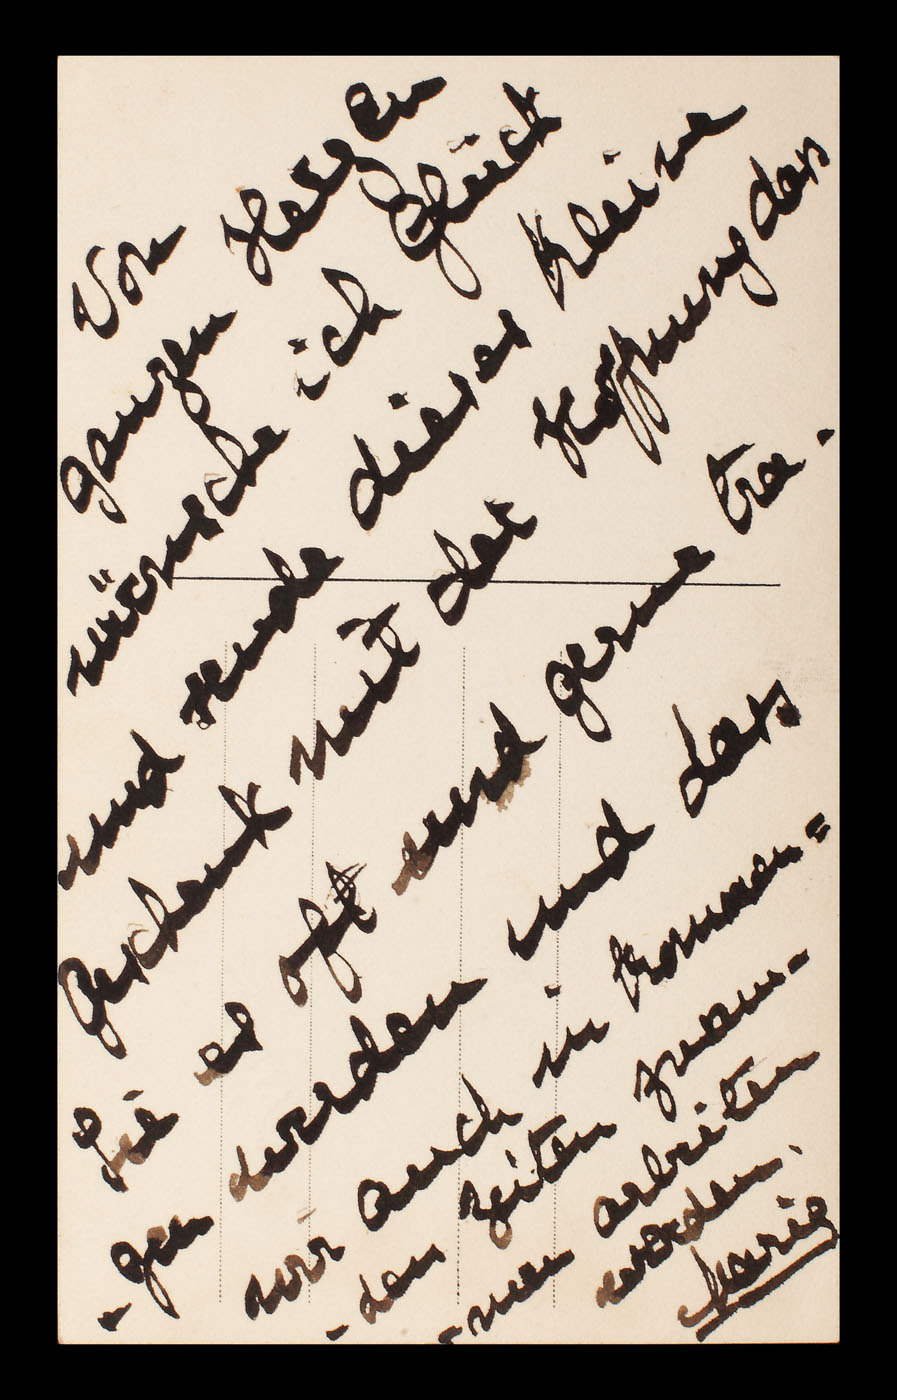 Von
ganzen Herzen
wünsche ich Glück
und sende dieses kleine
Geschenk mit der Hoffnung dass
Sie es oft und gerne tra-
-gen werden und dass
wir auch in kommen=
-den Zeiten zusam-
-men arbeiten
werden.
Marie